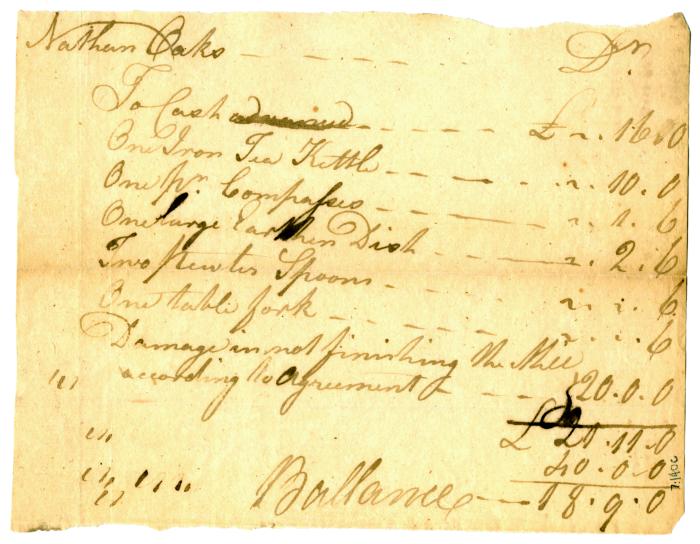 Nathan Oaks - - - - - Dr
To Cash - - - - - £ ". 16. 0
One Iron Tea Kettle - - - - - ". 10. 0
One pr. Compasses - - - - ". 1. 6
One large Earthen Dish - - - ". 2. 6
Two Pewter Spoons - - - - ". ". 6
One table fork - - - - - - ". ". 6
Damage in not finishing the Mill
according to agreement - - - } 20. 0. 0
£ 21. 11. 0
40. 0. 0
Ballance - - 18. 9. 0